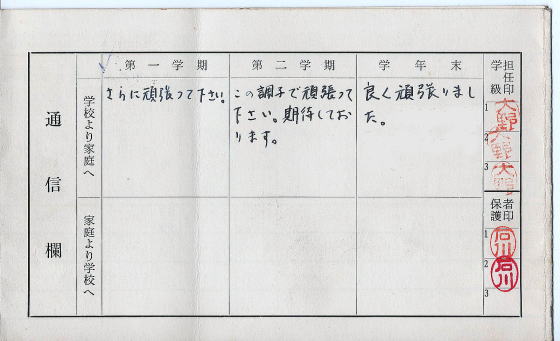 通信欄
第一学期
第二学期
学年末
学校より家庭へ
さらに頑張って下さい。
この調子で頑張って
下さい。期待してお
ります。
良く頑張りまし
た。
家庭より学校へ
学級担任印
1
大野
2
大野
3
大野
保護者印
1
石川
2
石川
3